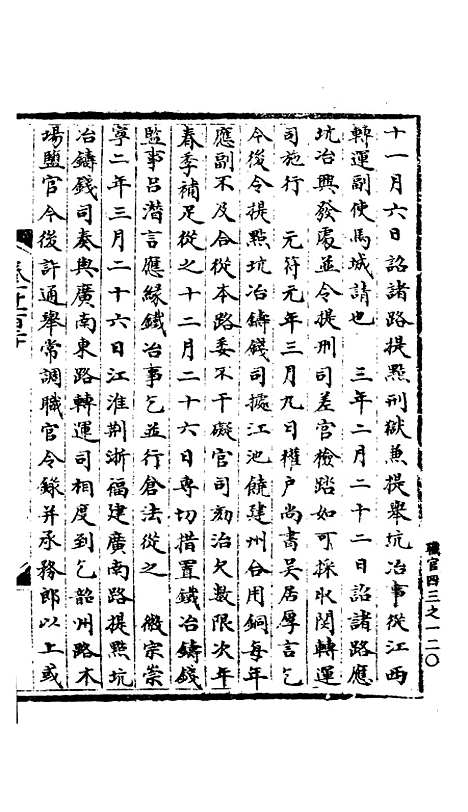 職官四三之一二〇
十一月六日詔諸路提點刑獄兼提舉坑冶事從江西
轉運副使馬城請也　三年二月二十二日詔諸路應
坑冶興發處並令提刑司差官檢踏如可採取関轉運
司施行　元符元年三月九日權户尚書吴居厚言乞
今後令提點坑冶鑄錢司據江池饒建州合用銅每年
應副不及合從本路委不干礙官司劾治欠數限次年
春季補足從之十二月二十六日專切措置鐵冶鑄錢
監事吕潛言應緣鐵冶事乞並行倉法從之　徽宗崇
寧二年三月二十六日江淮荆浙福建廣南路提點坑
冶鑄錢司奏與廣南東路轉運司相度到乞韶州路木
場監官今後許通舉常調職官令録并承務郎以上或